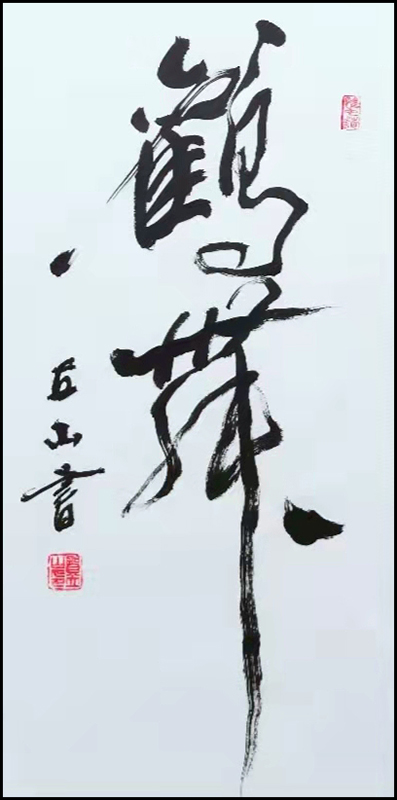 鶴舞
丘山書